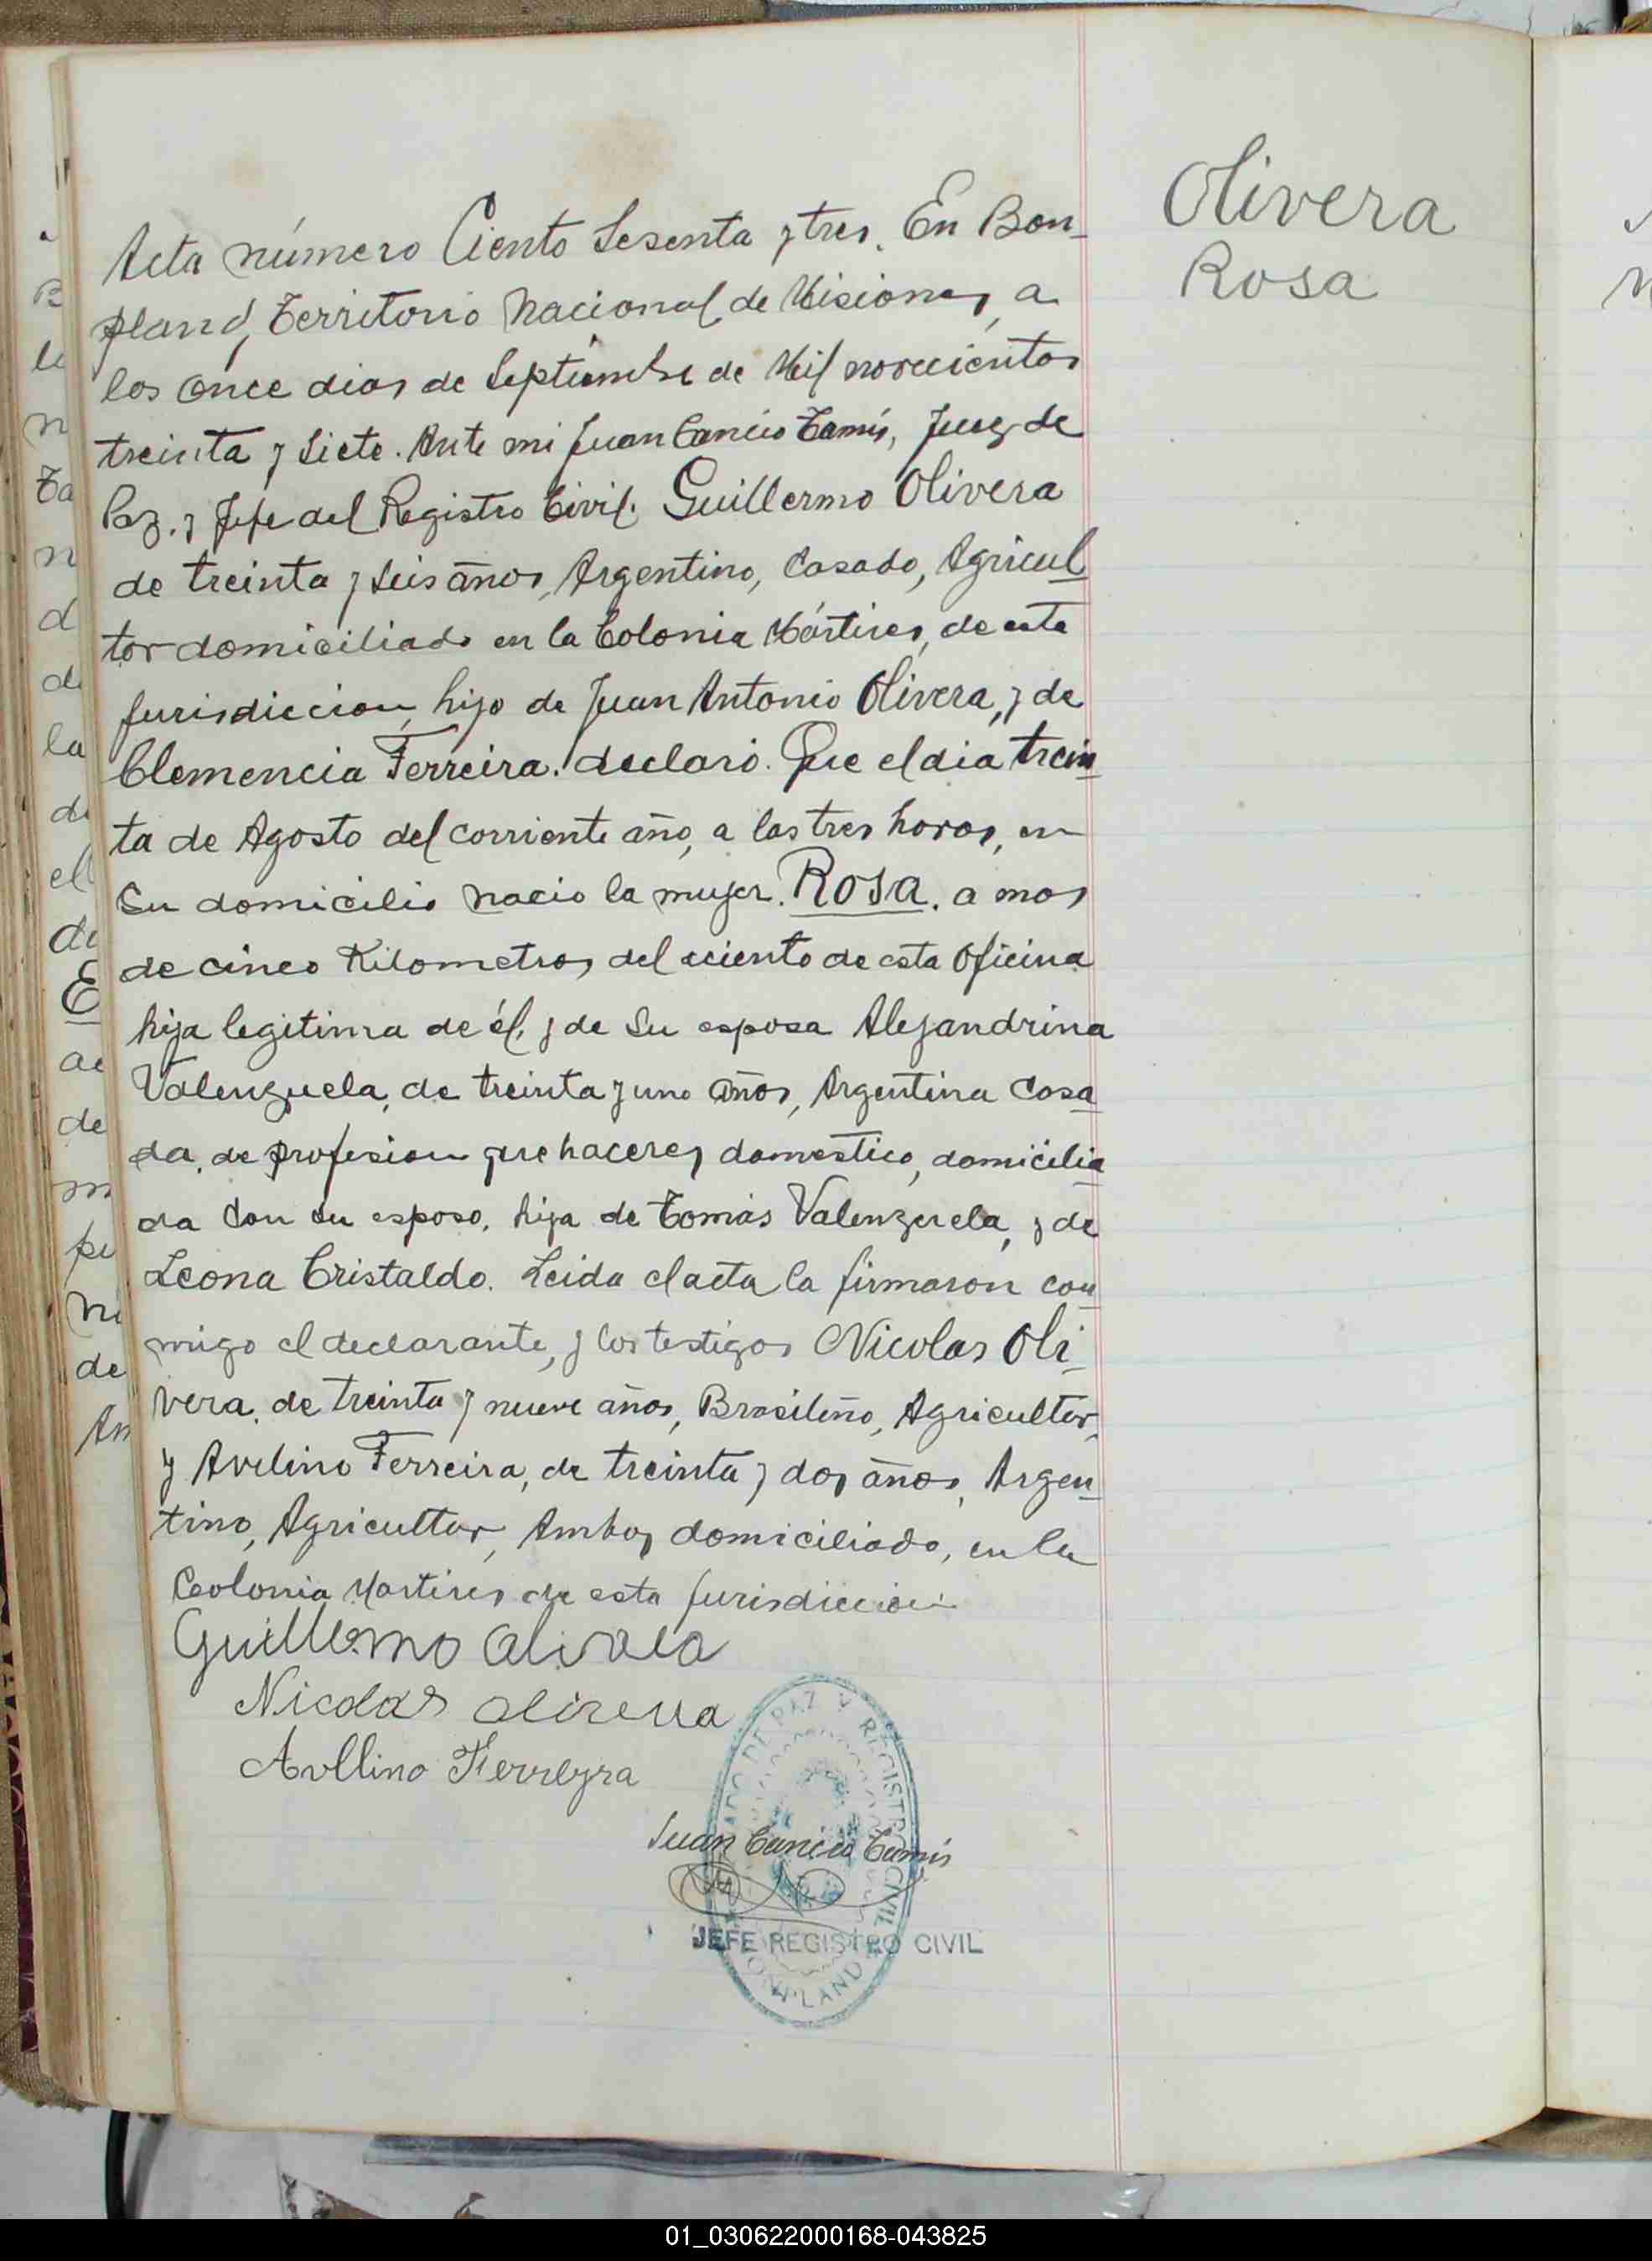 Olivera
Rosa
Acta número Ciento Sesenta y tres. En Bon-
pland, Territorio Nacional de Misiones, a
los once dias de Septiembre de Mil novecientos
treinta y siete. Ante mi Juan Cancio Tamis, Juez de
Paz. y Jefe del Registro Civil. Guillermo Olivera
de treinta y seis años, Argentino, Casado, Agricul
tor domiciliado en la Colonia Mártires, de esta
jurisdiccion, hijo de Juan Antonio Olivera, y de
Clemencia Ferreira. declaró. Que el dia trein
ta de Agosto del corriente año, a las tres horas, en
su domicilio nacio la mujer. ROSA. a mas
de cinco Kilometros del aciento de esta oficina
hija legitima de él, y de su esposa Alejandrina
Valenzuela, de treinta y uno años, Argentina Casa
da, de profesion quehaceres domestico, domicilia
da con su esposo, hija de Tomás Valenzuela, y de
Leona Cristaldo. Leida el acta la firmaron con
migo el declarante, y los testigos Nicolas Oli
vera, de treinta y nueve años, Brasileño, Agricultor,
y Avelino Ferreira, de treinta y dos años, Argen
tino, Agricultor, Ambos domiciliado, en la
Colonia Martires de esta jurisdiccion
Guillermo Olivera
Nicolas Olivera
Avllino Ferreyra
Juan Cancio Tamis
JEFE REGISTRO CIVIL
DE PAZ Y REGISTRO CIVIL
BONPLAND
B
le
n
Ta
n
d
de
la
de
el
de
E
ac
de
m
pe
Ni
de
An
01_030622000168-043825